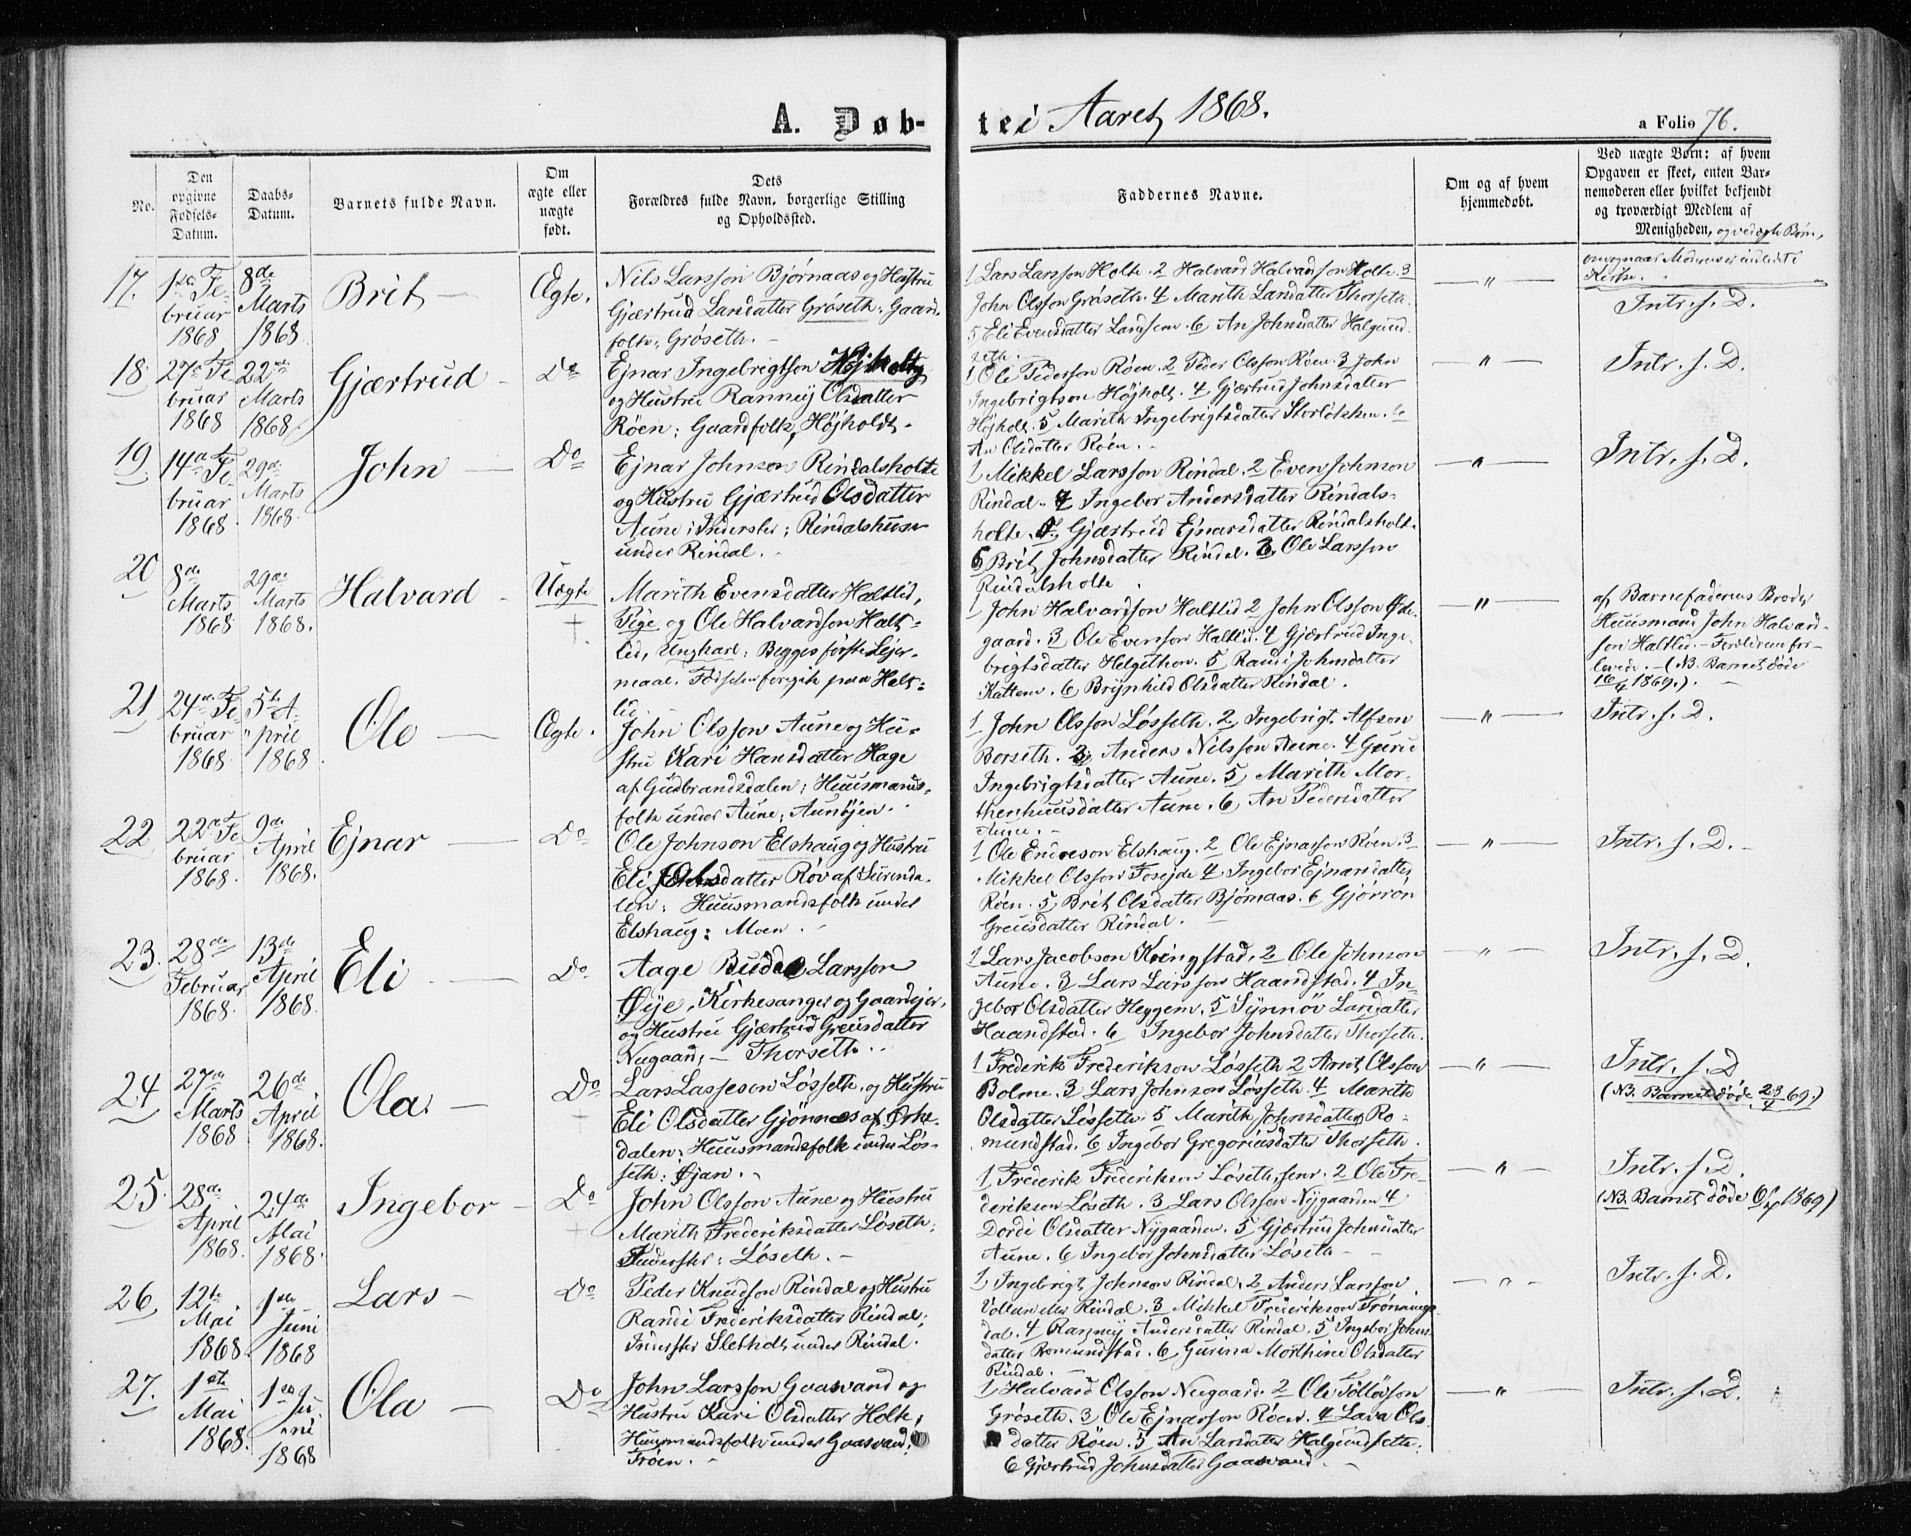 A. Døb-
te i Aaret 1868.
a Folio 76.
No.
Den opgivne Fødsels-Datum.
Daabs-Datum.
Barnets fulde Navn.
Om ægte eller uægte født.
Dets
Forældres fulde Navn, borgerlige Stilling
og Opholdssted.
Faddernes Navne.
Om og af hvem
hjemmedøbt.
Ved uægte Børn: af hvem
Opgaven er skeet, enten Bar-
nemoderen eller hvilket bekjendt
og troværdigt Medlem af
Menigheden, og ved ægte Børn,
om og naar Moderen er indledt i
Kirke.
17.
1ste Fe-
bruar
1868
8de
Marts
1868.
Brit
Ægte.
Nils Larsson Bjørnaas og Hustru
Gjærtrud Larsdatter Grøseth, Gaard-
folk, Grøseth.
1 Lars Larsson Holte. 2 Halvard Halvardson Holte. 3
John Olsson Grøseth. 4 Marith Larsdatter Thorseth.
5 Eli Evensdatter Landsem. 6 An Johnsdatter Halgund-
seth.
"
Intr. s. D.
18.
27de Fe
bruar
1868
22de
Marts
1868.
Gjærtrud
Do
Ejnar Ingebrigtson Højholt
og Hustru Rannej Olsdatter
Røen: Gaardfolk, Højholdt.
1 Ole Pederson Røen. 2 Peder Olsson Røen. 3 John
Ingebrigtson Højholt. 4 Gjærtrud Johnsdatter
Højholt. 5 Marith Ingebrigtsdatter Storløkken. 6
An Olsdatter Røen.
"
Intr. s. D.
19
14de Fe
bruar
1868
29de
Marts
1868.
John
Do
Ejnar Johnson Rindalsholte
og Hustru Gjærtrud Olsdatter
Aune: Inderster: Rindalshusen
under Rindal.
1 Mikkel Larsson Rindal. 2 Even Johnson
Rindal. Ingebor Andersdatter Rindals-
holte. Gjærtrud Ejnarsdatter Rindalsholt.
Brit Johnsdatter Rindal. Ole Larsson
Rindalsholte
"
Intr. s. D.
20
8de
Marts
1868
29de
Marts
1868.
Halvard
Uægte
Marith Evensdatter Haltlid,
Pige og Ole Halvardson Halt-
lid, Ungkarl: Begges første Lejer-
maal. Fødselen foregik paa Halt-
lid.
1 John Halvardson Haltlid 2 John Olsson Øde-
gaard. 3 Ole Evenson Haltlid. 4 Gjærtrud Inge-
brigtsdatter Helgethon. 5 Randi Johnsdatter
Kattem. 6 Brynhild Olsdatter Rindal.
"
af Barnefaderens Broder
Huusmand John Halvard-
son Haltlid. - Forældrene for-
lovede. - (NB. Barnet døde
16/4 1869.)
21
24de Fe
bruar
1868
5te A-
pril
1868
Ole
Ægte.
John Olsson Aune og Hu-
stru Kari Hansdatter Hage
af Gudbrandsdalen; Huusmands-
folk under Aune, Aunøjen.
1 John Olsson Løsseth. 2 Ingebrigt Alfson
Borseth. 3 Anders Nilsson Aune. 4 Guru
Ingebrigtsdatter Aune. 5 Marith Mor-
thenhuusdatter Aune. 6 An Pedersdatter
Aune.
"
Intr. s. D.
22
22de Fe
bruar
1868.
9de
April
1868.
Ejnar
Do
Ole Johnson Elshaug og Hustru
Eli Olsdatter Røv af Surenda-
len: Huusmandsfolk under
Elshaug: Moen.
1 Ole Endreson Elshaug. 2 Ole Ejnarson Røen. 3
Mikkel Olsson Fosejde 4 Ingebor Ejnarsdatter
Røen. 5 Brit Olsdatter Bjørnaas. 6 Gjørron
Greusdatter Rindal.
"
Intr. s. D.
23.
28de
Februar
1868.
13de
April
1868
Eli
Do
Aage Budde Larsson
Øye, Kirkesanger og Gaardejer,
og Hustru Gjærtrud Greusdatter
Nugaard, - Thorseth.
1 Lars Jacobson Kringstad. 2 Ole Johnson
Aune. 3 Lars Larsson Haandstad. 4 In-
gebor Olsdatter Heggem. 5 Synnøv Larsdatter
Haandstad. 6 Ingebor Johnsdatter Thorseth.
"
Intr. s. D.
24
27de
Marts
1868
26de
April
1868.
Ola.
Do
Lars Lasseson Løsseth. og Hustru
Eli Olsdatter Gjønnes af Ørke-
dalen: Huusmandsfolk under Løs-
seth: Øjan.
1 Frederik Frederikson Løsseth 2 Arnt Olsson
Bolme. 3 Lars Johnson Løsseth 4 Marith
Olsdatter Løsseth. 5 Marith Johnsdatter Ro-
mundstad. 6 Ingebor Gregoriusdatter Thorseth.
"
Intr. s. D
(NB. Barnet døde 23/4 69.)
25
28de
April
1868.
24de
Mai
1868.
Ingebor
Do
John Olsson Aune og Hustru
Marith Frederiksdatter Løseth:
Inderster: Løseth.
1 Frederik Frederiksen Løseth, senr. 2 Ole Fre-
deriksen Løseth. 3 Lars Olsson Nygaarden 4
Dordi Olsdatter Nygaarden. 5 Gjærtrud Johnsdatter
Aune. 6 Ingebor Johnsdatter Løseth
"
Intr. s. D.
(NB. Barnet døde 1869)
26
12te
Mai
1868.
1ste
Juni
1868
Lars
Do
Peder Knudson Rindal og Hustru
Randi Frederiksdatter Rindal;
Inderster Sletholt under Rindal.
1 Ingebrigt Johnson Rindal. 2 Anders Larsson
Vollan eller Rindal. 3 Mikkel Frederikson Trønnings-
dal. 4 Rannej Andersdatter Rindal. 5 Ingebor Johns-
datter Romundstad. 6 Gurina Morthine Olsdatter
Rindal.
"
Intr. s. D.
27.
1ste
Mai
1868.
1ste Ju-
ni
1868
Ola
Do
John Larsson Gaasvand og
Hustru Kari Olsdatter Holte;
Huusmandsfolk under Gaasvand;
Trøen.
1 Halvard Olsson Nugaard. 2 Ole Tølløvson
Grøseth. 3 Ole Ejnarson Røen. 4 Lava Ols-
datter Røen. 5 An Larsdatter Halgundseth.
6 Gjærtrud Johnsdatter Gaasvand.
"
Intr. s. D.